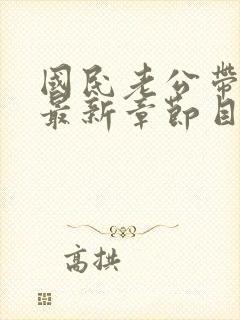 國民老公帶
最新章節目
高拱